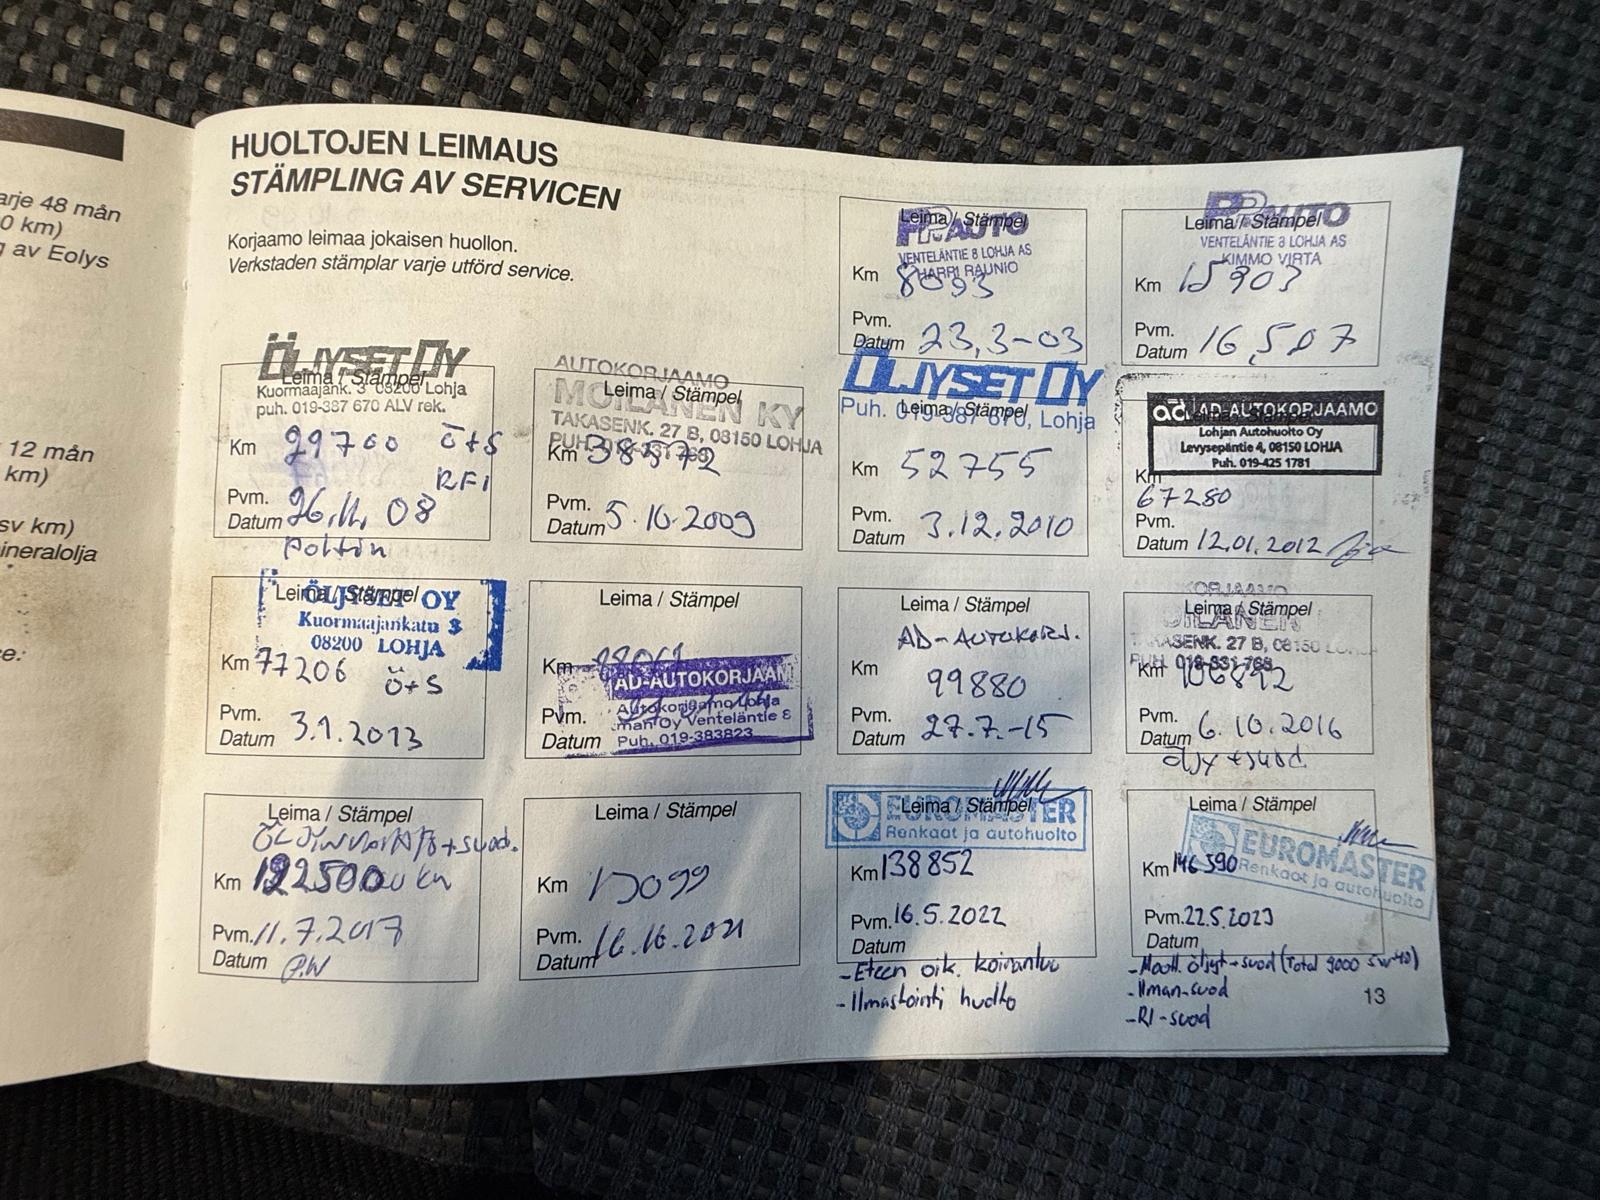 arje 48 mån
0 km)
av Eolys
12 mån
km)
sv km)
ineralolja
e:
HUOLTOJEN LEIMAUS
STÄMPLING AV SERVICEN
Korjaamo leimaa jokaisen huollon.
Verkstaden stämplar varje utförd service.
PPAUTO
Leima / Stämpel
VENTELÄNTIE 8 LOHJA AS
HARRI RAUNIO
Km 8093
Pvm.
Datum 23,3-03
PPAUTO
Leima / Stämpel
VENTELÄNTIE 8 LOHJA AS
KIMMO VIRTA
Km 15903
Pvm.
Datum 16,5,07
ÖLJYSET OY
Leima / Stämpel
Kuormaajank. 3 08200 Lohja
puh. 019-387 670 ALV rek.
Km 29700 Ö+S
Pvm.
Datum 26.11.08
AUTOKORJAAMO
Leima / Stämpel
MOILANEN KY
TAKASENK. 27 B, 08150 LOHJA
PUH.
Km 38572
Pvm.
Datum 5.10.2009
ÖLJYSET OY
Leima / Stämpel
Puh. 019-387 670, Lohja
Km 52755
Pvm.
Datum 3.12.2010
ad AD-AUTOKORJAAMO
Lohjan Autohuolto Oy
Levysepäntie 4, 08150 LOHJA
Puh. 019-425 1781
Km
67280
Pvm.
Datum 12.01.2012
Leima / Stämpel
ÖLJYSET OY
Kuormaajankatu 3
08200 LOHJA
Km 77206 Ö+S
Pvm.
Datum 3.1.2013
Leima / Stämpel
Km
AD-AUTOKORJAAM
Autokorjaamo Lohja
man Oy Venteläntie 8
Puh. 019-383823
Pvm.
Datum
Leima / Stämpel
AD-AUTOKORJ.
Km 99880
Pvm.
Datum 27.7.-15
KORJAAMO
Leima / Stämpel
OILANEN
TAKASENK. 27 B, 08150 LOHJA
PUH. 019-331 768
Km 106892
Pvm.
Datum 6.10.2016
öljy + suod.
Leima / Stämpel
ÖLJYNVAIHTO + suod.
Km 122500
Pvm. 11.7.2017
Datum P.W
Leima / Stämpel
Km
Pvm.
Datum
Leima / Stämpel
EUROMASTER
Renkaat ja autohuolto
Km 138852
Pvm. 16.5.2022
Datum
- Eteen oik. koiranluu
- Ilmastointi huolto
Leima / Stämpel
EUROMASTER
Renkaat ja autohuolto
Km 146590
Pvm. 22.5.2023
Datum
- Moott. öljyt + suod (Total 9000 5w40)
- Ilman-suod
- RI-suod
13